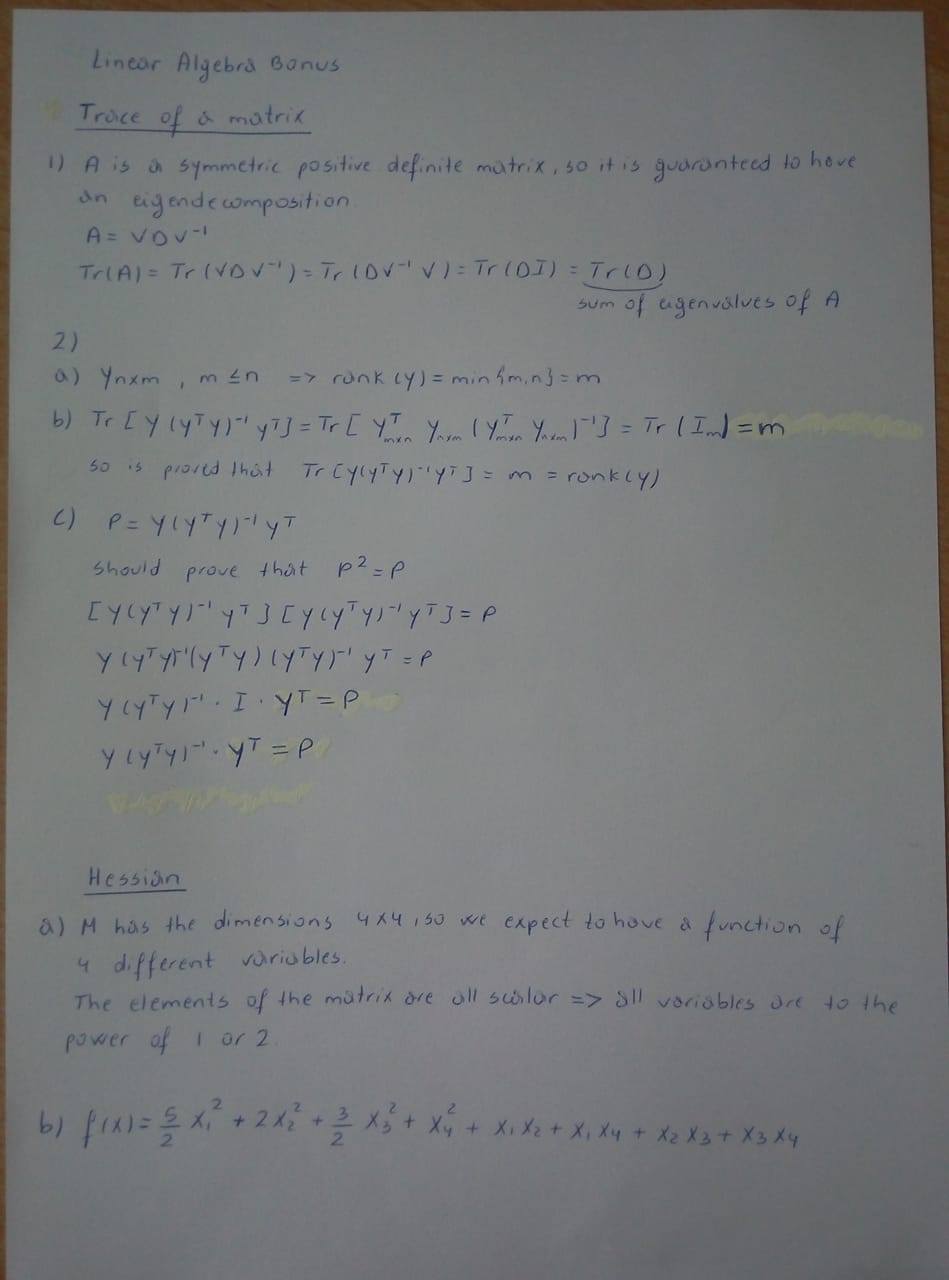 Linear Algebra Bonus
Trace of a matrix
1) A is a symmetric positive definite matrix, so it is guaranteed to have
an eigendecomposition
A = VDV⁻¹
Tr(A) = Tr(VDV⁻¹) = Tr(DV⁻¹V) = Tr(DI) = Tr(D)
sum of eigenvalues of A
2)
a) Yₙₓₘ , m ≤ n => rank(Y) = min{m,n} = m
b) Tr[Y(YᵀY)⁻¹Yᵀ] = Tr[Yᵀₘₓₙ Yₙₓₘ (Yᵀₘₓₙ Yₙₓₘ)⁻¹] = Tr(Iₘ) = m
so is proved that Tr[Y(YᵀY)⁻¹Yᵀ] = m = rank(Y)
c) P = Y(YᵀY)⁻¹Yᵀ
should prove that P² = P
[Y(YᵀY)⁻¹Yᵀ][Y(YᵀY)⁻¹Yᵀ] = P
Y(YᵀY)⁻¹(YᵀY)(YᵀY)⁻¹Yᵀ = P
Y(YᵀY)⁻¹ · I · Yᵀ = P
Y(YᵀY)⁻¹ · Yᵀ = P
Hessian
a) M has the dimensions 4x4, so we expect to have a function of
4 different variables.
The elements of the matrix are all scalar => all variables are to the
power of 1 or 2.
b) f(x) = 5/2 x₁² + 2x₂² + 3/2 x₃² + x₄² + x₁x₂ + x₁x₄ + x₂x₃ + x₃x₄